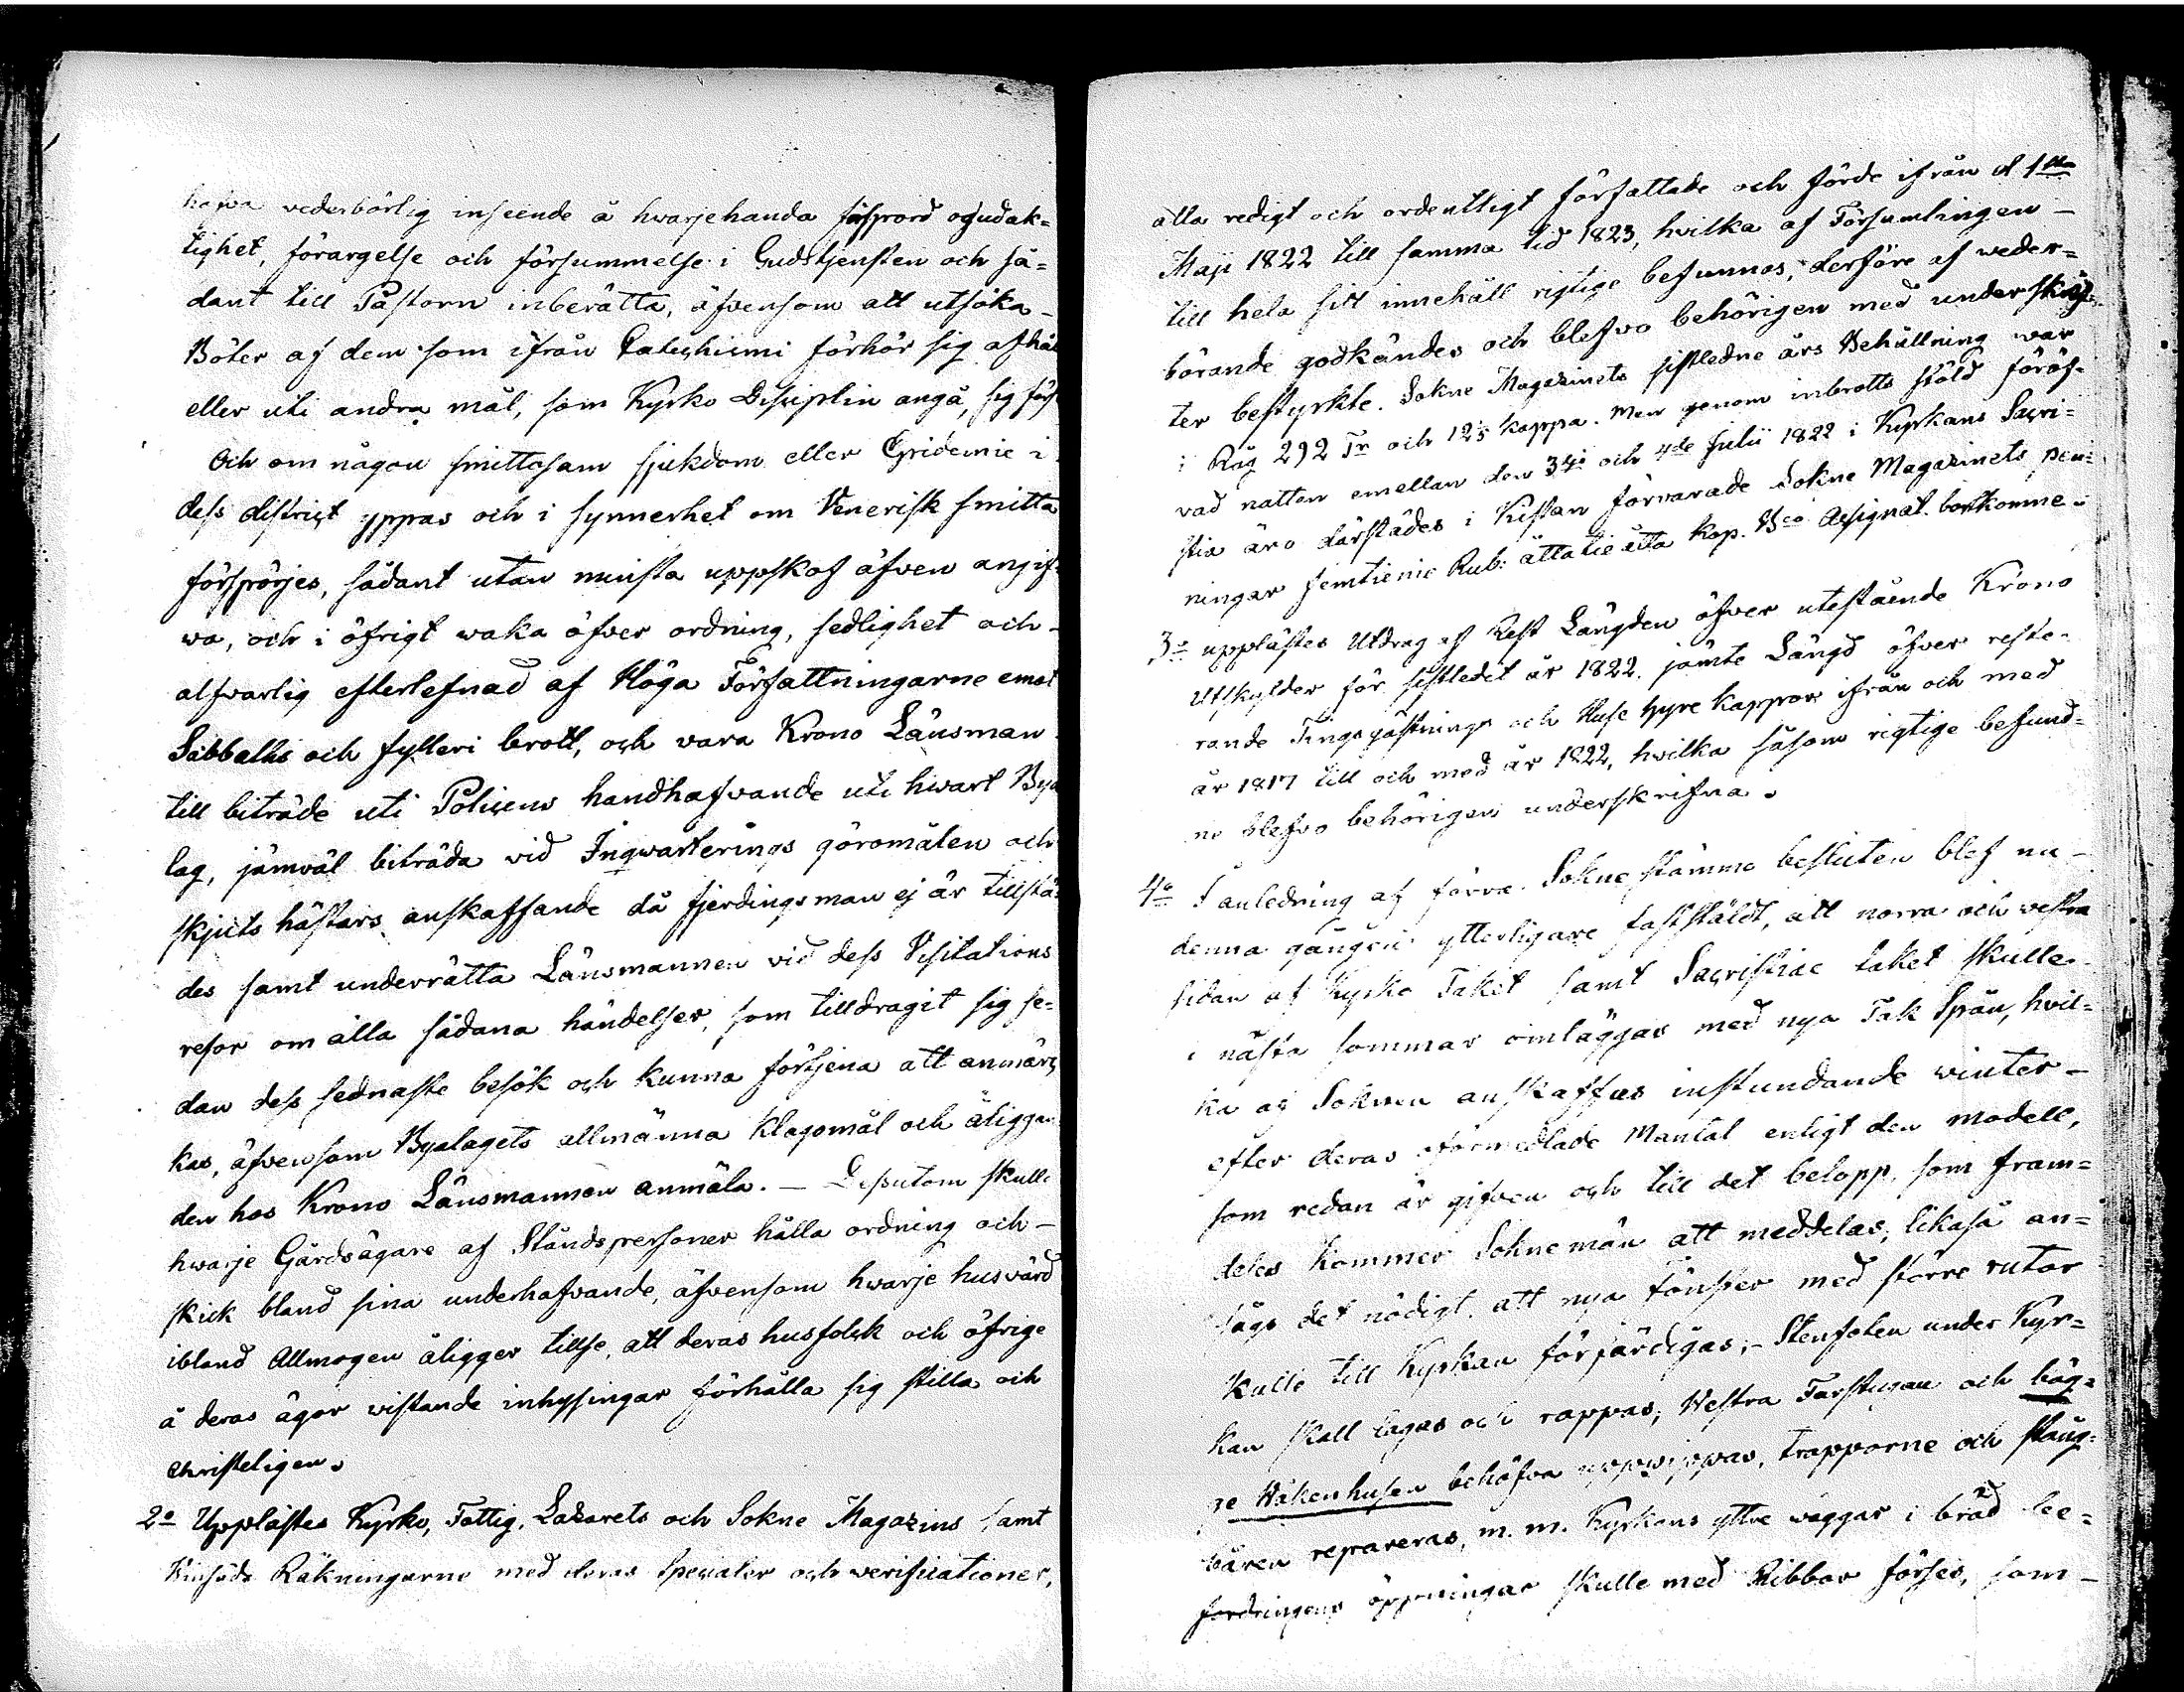 hafva vederbörlig inseende å hvarjehanda försprord ogudak=
tighet, förargelse och försummelse i Gudstjensten och så=
dant till Pastorn inberätta, äfvensom att utsöka -
Böter af dem som ifrån Cateshismi förhör sig afhål
eller uti andra mål, som Kyrko Disiplin angå, sig för
Och om någon smittosam sjukdom eller Epidemie i
dess district yppas och i synnerhet om Venerisk smitta
förspörjes, sådant utan minsta uppskof äfven angif=
va, och i öfrigt waka öfver ordning, sedlighet och -
alfvarlig efterlefnad af Höga Författningarne emot
Sabbaths och fylleri brott, och vara Krono Länsman
till biträde uti Polisens handhafvande uti hvart Bya
lag, jämväl biträda vid Inqwarterings göromålen och
skjuts hästars anskaffande då fjerdingsman ej är tillstä=
des samt underrätta Länsmannen vid dess Visitations
resor om alla sådana händelser, som tilldragit sig se=
dan dess sednaste besök och kunna förtjena att anmärk
kas, äfvensom Byalagets allmänna klagomål och åliggan
den hos Krono Länsmannen anmäla. - Dessutom skulle
hwarje Gårdsägare af Ståndspersoner hålla ordning och -
skick bland sina underhafvande, äfvensom hwarje husvärd
ibland Allmogen åligger tillse, att deras husfolck och öfrige
å deras ägor vistande inhysingar förhålla sig stilla och
christeligen.
2o Upplästes Kyrko, Fattig, Lazarets och Sokne Magazins samt
Räkningarne med deras Specialer och verificationer,
alla redigt och ordentligt författade och förde ifrån d 1sta
Maji 1822 till samma tid 1823, hvilka af Församlingen -
till hela sitt innehåll rigtige befunnos, derföre af weder=
börande godkändes och blefvo behörigen med underskrif=
ter bestyrkte. Sokne Magazinets sistledne års Behållning war
i Råg 292 Tr och 12⅓ kappa. Men genom inbrotts stöld föröf=
vad natten emellan den 3dj och 4de Julii 1822 i Kyrkans Sacri=
stia äro därstädes i Kistan förvarade Sokne Magazinets pen=
ningar femtienie Rub: åttatie åtta kop. Bco Assignat. bortkomne.
3o upplästes Utdrag af Rest Längden öfver utestående Krono
Utskylder för sistledit år 1822, jämte Längd öfver reste=
rande Tingsgästnings och Huse hyre kappor ifrån och med
år 1817 till och med år 1822, hvilka såsom rigtige befund=
ne blefvo behörigen underskrifna.
4o I anledning af förra Sokne stämmo besluten blef nu -
denna gången ytterligare fastställdt, att norra och vestra
sidan af Kyrko Taket samt Sacristiae taket skulle
i nästa sommar omläggas med nya Tak Spån, hvil=
ka af Soknen anskaffas instundande winter -
efter deras förmedlade Mantal enligt den modell,
som redan är gifven och till det belopp, som fram=
deles kommer Soknemän att meddelas; likaså an=
sågs det nödigt att nya fönster med större rutor
kulle till Kyrkan förfärdigas; - Stenfoten under Kyr=
kan skall lagas och rappas, Westra Farstugan och båg=
ge Wåkenhusen behöfva uppwippas, trapporne och stäng=
repareras, m. m. Kyrkans yttre väggar i bräd bee=
fordringens öppningar skulle med Ribbor förses, som -